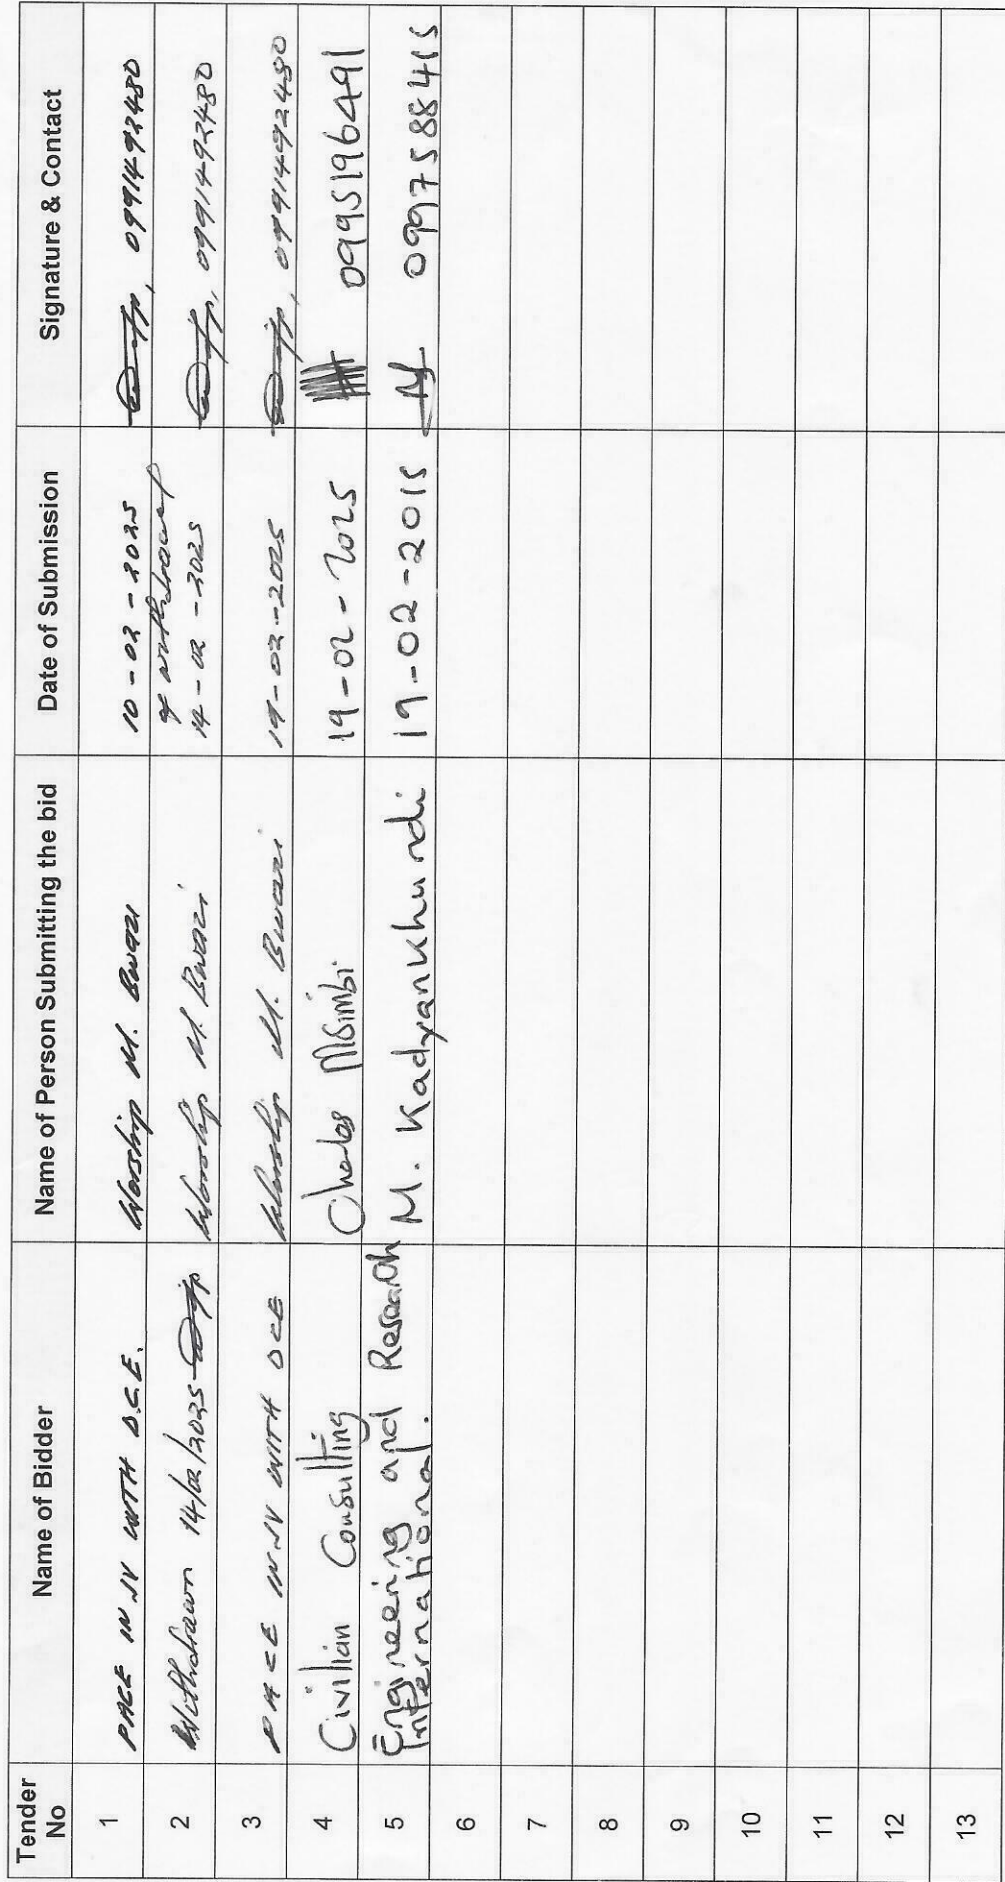 Tender No
Name of Bidder
Name of Person Submitting the bid
Date of Submission
Signature & Contact
1
PACE IN JV WITH D.C.E.
Worship M. Bwazi
10-02-2025
0991492480
2
Withdrawn 14/02/2025
Worship M. Bwazi
of withdrawal
14-02-2025
0991492480
3
PACE IN JV WITH DCE
Worship M. Bwazi
19-02-2025
0991492480
4
Civilian Consulting
Charles Msimbi
19-02-2025
0995196491
5
Engineering and Research
International.
M. Kadyankhundi
19-02-2015
099758841S
6
7
8
9
10
11
12
13